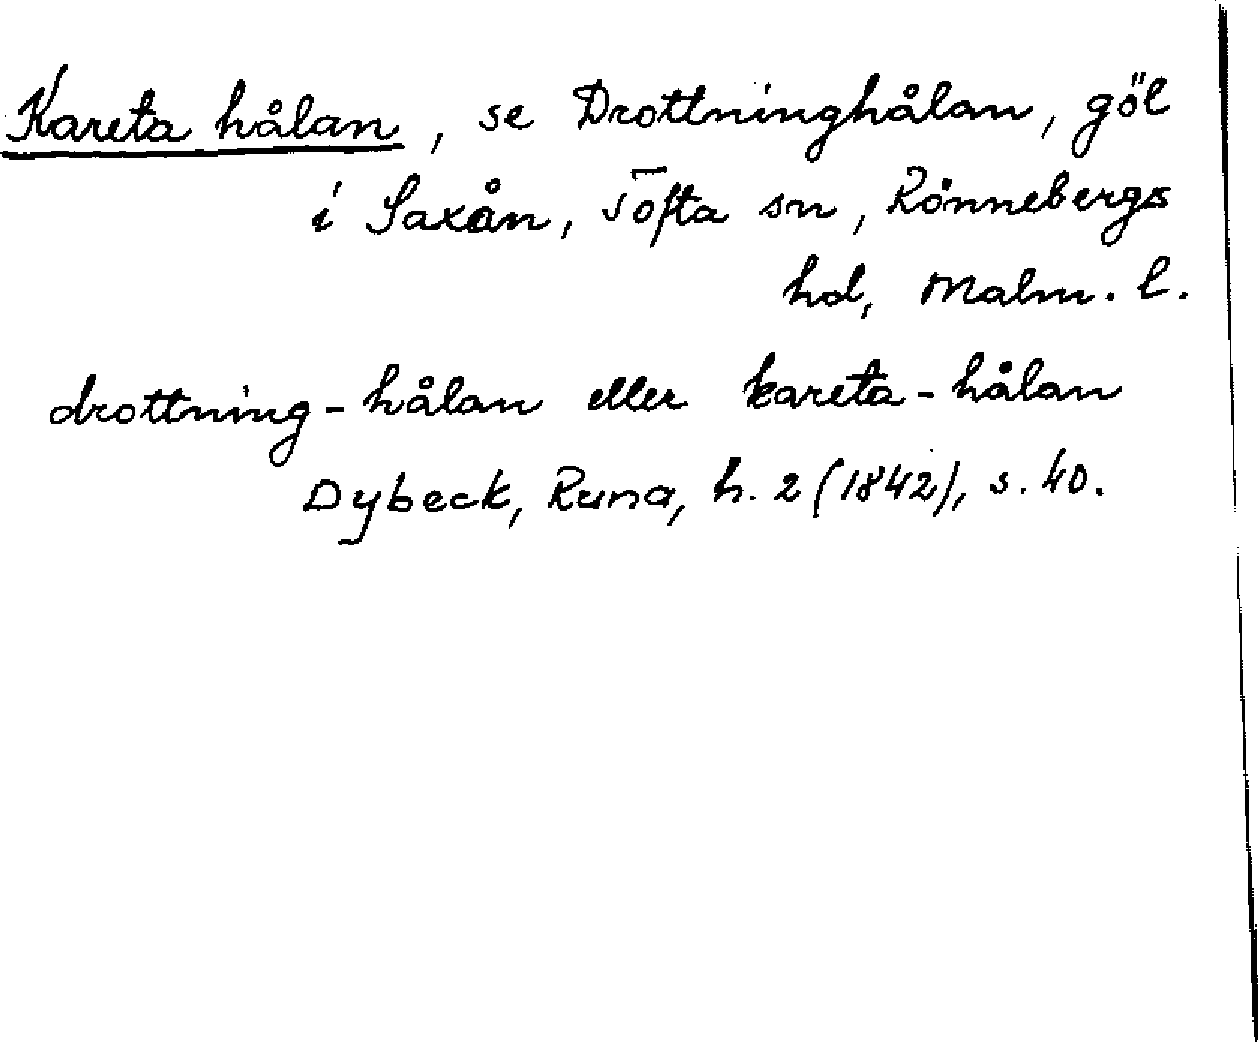 Kareta hålan, se Drottninghålan, göl
i Saxån, Tofta sn, Rönnebergs
hd, Malm. l.
drottning-hålan eller kareta-hålan
Dybeck, Runa, h. 2 (1842), s. 40.